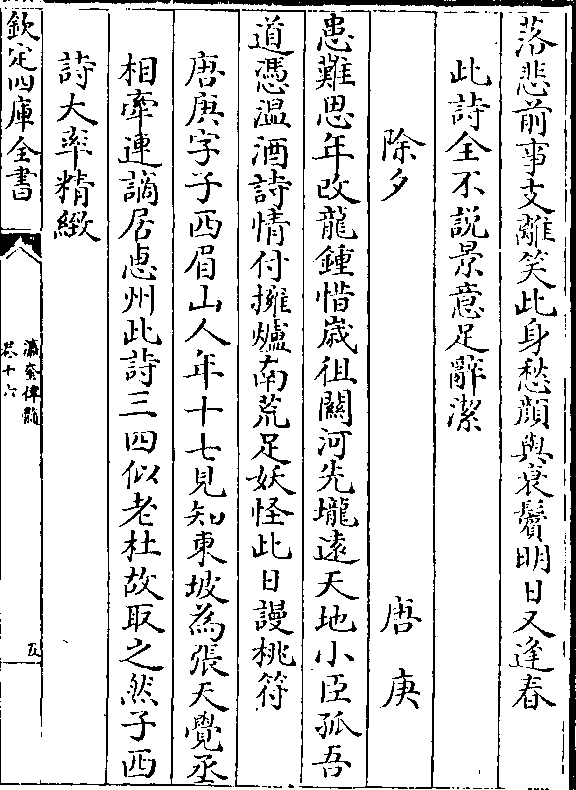 落悲前事支離笑此身愁顔與衰鬢明日又逢春
此詩全不説景意足辭潔
除夕　唐庚
患難思年改龍鍾惜歳徂關河先壠遠天地小臣孤吾
道憑温酒詩情付擁爐南荒足妖怪此日謾桃符
唐庚字子西眉山人年十七見知東坡為張天覺丞
相牽連謫居惠州此詩三四似老杜故取之然子西
詩大率精緻
欽定四庫全書
瀛奎律髓
卷十六
五